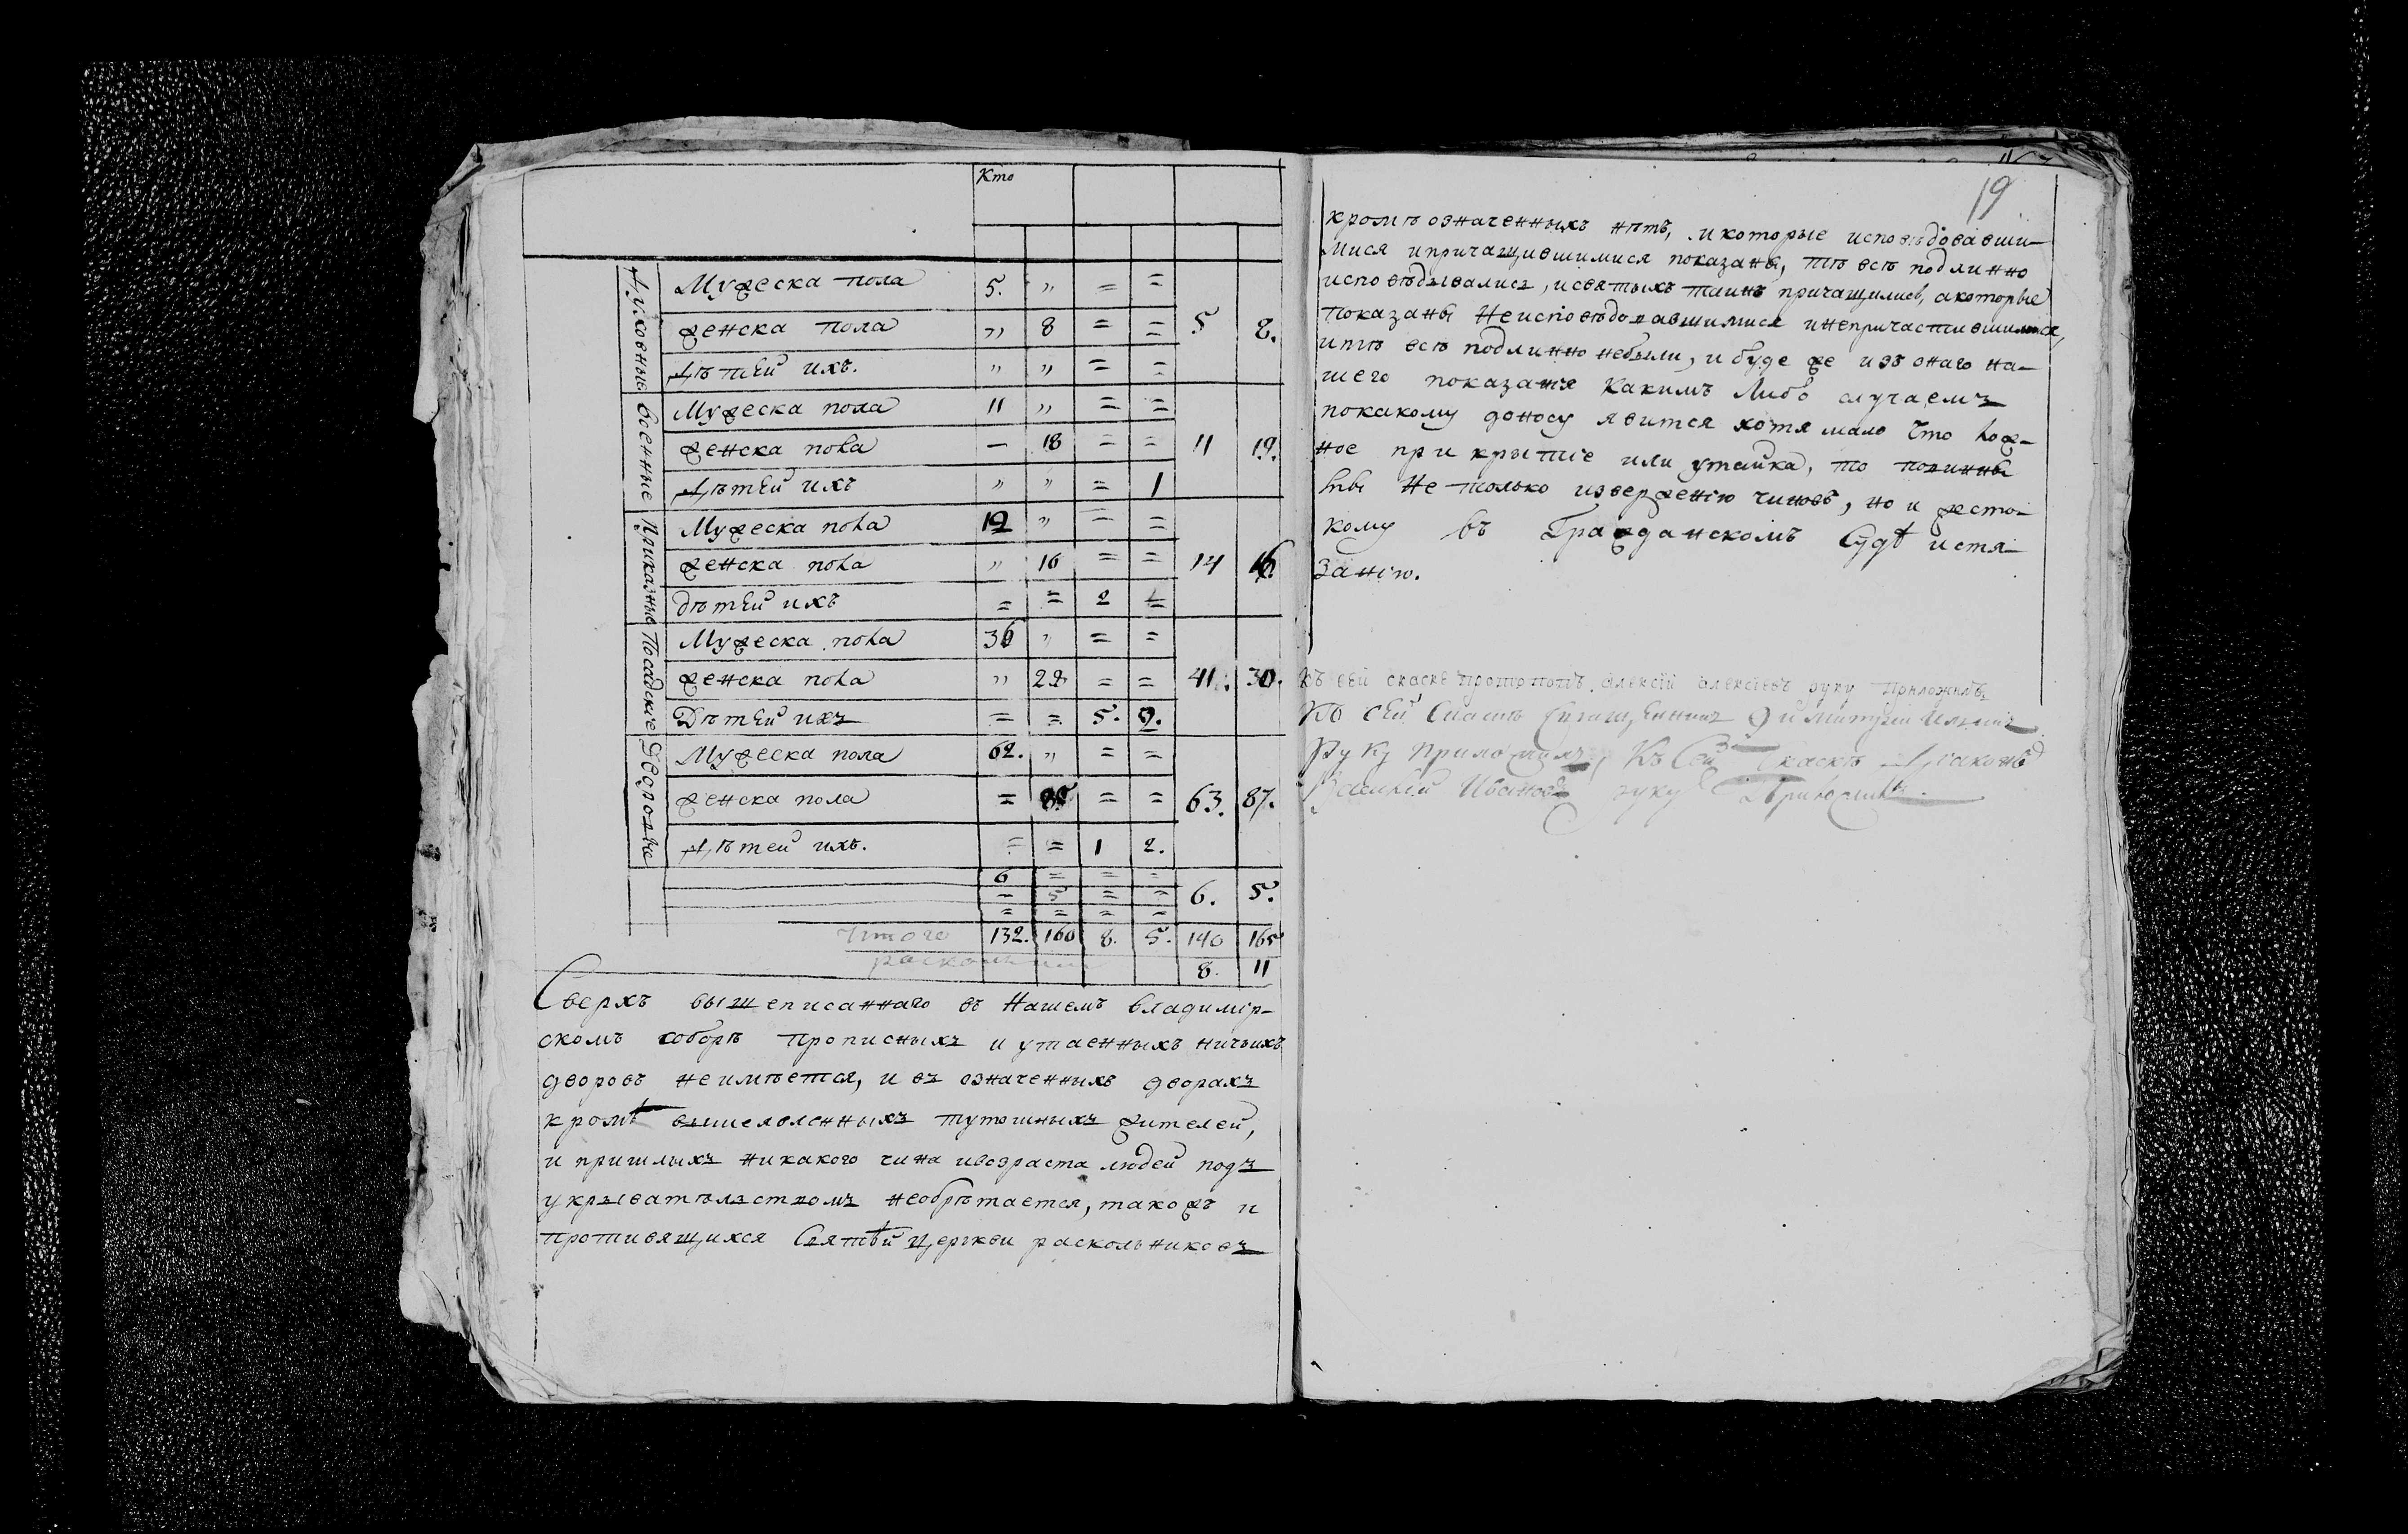 Кто
Духовные
Мужеска пола 5. " = =
женска пола " 8 = = 5 8.
Дѣтей ихъ. " " = =
военные
Мужеска пола 11 " = =
женска пола — 18 = = 11 19.
Дѣтей ихъ " " = 1
Приказные
Мужеска пола 12 " = =
женска пола " 16 = = 14 16.
дѣтей ихъ = = 2 =
Посадскіе
Мужеска пола 36 " = =
женска пола " 28 = = 41. 30.
Дѣтей ихъ = = 5. 2.
Дворовые
Мужеска пола 62. " = =
женска пола = 85 = = 63. 87.
Дѣтей ихъ. = = 1 2.
6 = = =
= 5 = = 6. 5.
= = = =
Итого 132. 160 8. 5. 140 165
8. 11
Сверхъ вышеписаннаго въ нашемъ владимір-
скомъ соборѣ прописныхъ и утаенныхъ ничьихъ
дворовъ неимѣется, и въ означенныхъ дворахъ
кромѣ вышеявленныхъ тутошныхъ жителей,
и пришлыхъ никакого чина ивозраста людей подъ
укрывательствомъ необрѣтается, такожъ и
противящихся Святѣй Церкви раскольниковъ
19
кромѣ означенныхъ нѣтъ, и которые исповѣдовавши-
мися ипричащившимися показаны, тѣ всѣ подлинно
исповѣдывались, исвятыхъ таинъ причащились, а которые
показаны неисповѣдовавшимися инепричастившимися,
итѣ всѣ подлинно небыли, и буде же изъ онаго на-
шего показанія какимъ либо случаемъ
покакому доносу явится хотя мало что лож-
ное прикрытіе или утайка, то повинны
мы не только изверженію чиновъ, но и жесто-
кому въ Гражданскомъ Судѣ истя-
занію.
Къ сей скаске протопопъ алексій алексіевъ руку приложилъ
Къ сей Священникъ Димитрій Ильинъ
руку приложилъ, Къ Сей Скаскѣ Діаконъ
Василій Ивановъ руку Приложилъ.